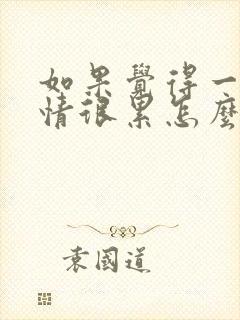 如果覺得一
情很累怎麼
袁國道